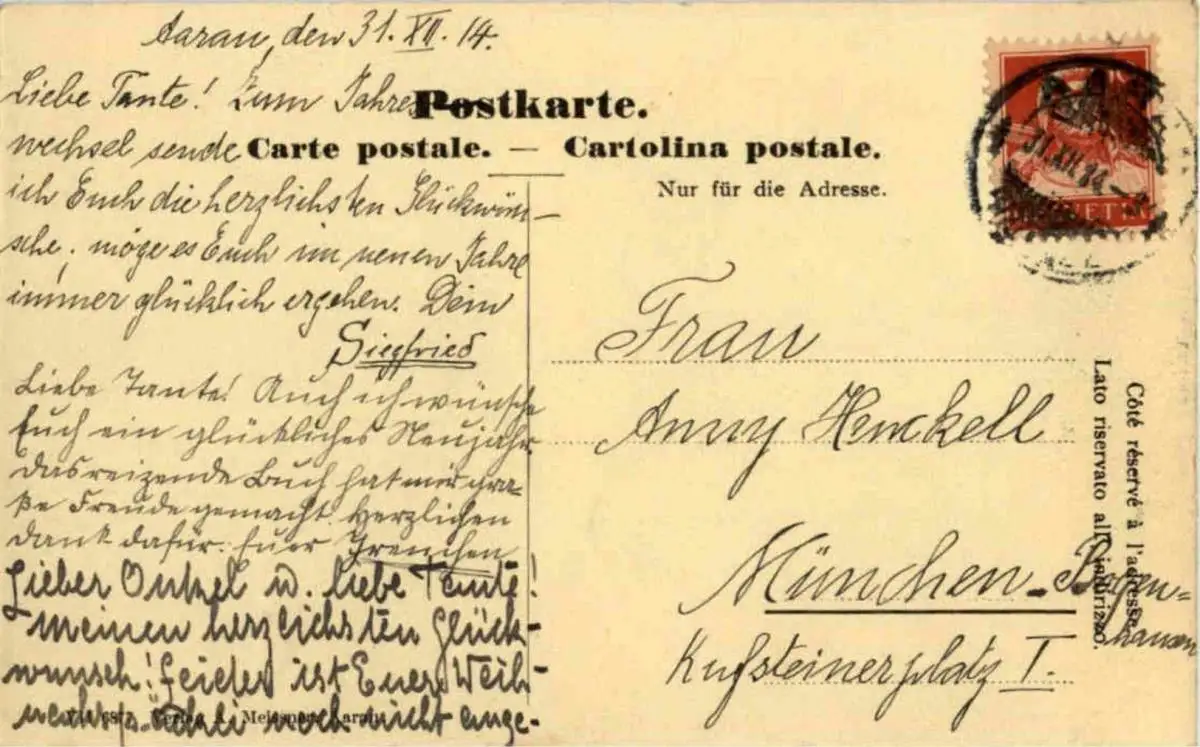 Aarau, den 31. XII. 14.
Liebe Tante! Zum Jahres
wechsel sende
ich Euch die herzlichsten Glückwün-
sche, möge es Euch im neuen Jahre
immer glücklich ergehen. Dein
Siegfried
Liebe Tante! Auch ich wünsche
Euch ein glückliches Neujahr.
Das reizende Buch hat mir gro-
ße Freude gemacht. Herzlichen
Dank dafür. Euer Irenchen
Lieber Onkel u. liebe Tante!
meinen herzlichsten Glück-
wunsch! Leider ist Euer Weih-
noch nicht ange-
Verlag A. Meissner, Aarau
Postkarte.
Carte postale. — Cartolina postale.
Nur für die Adresse.
31.XII.14
Frau
Anny Henckell
München-Bogen-
hausen
Kufsteinerplatz I.
Côté réservé à l'adresse.
Lato riservato all'indirizzo.